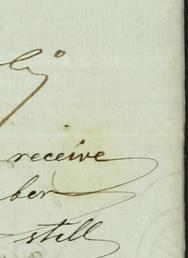 receive
ber
still